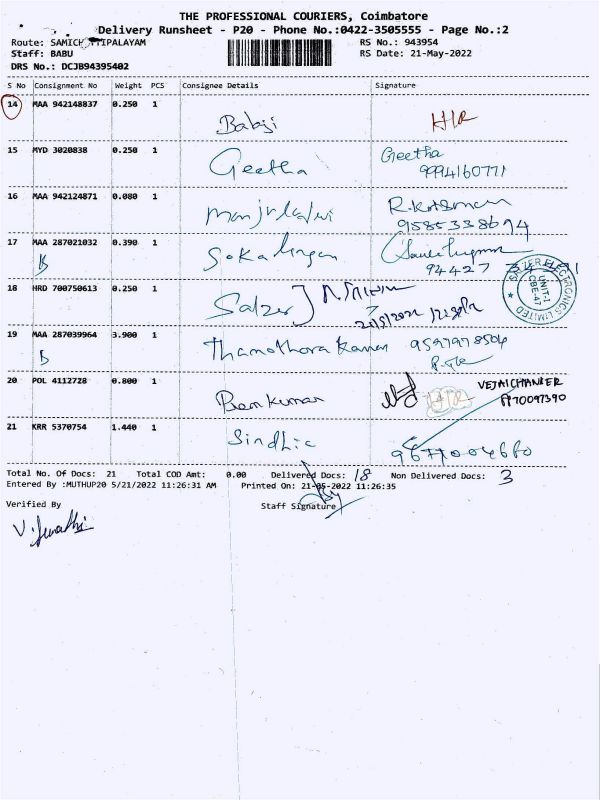 THE PROFESSIONAL COURIERS, Coimbatore
Delivery Runsheet - P20 - Phone No.:0422-3505555 - Page No.:2
Route: SAMICH TTIPALAYAM RS No.: 943954
Staff: BABU RS Date: 21-May-2022
DRS No.: DCJB94395402
S No Consignment No Weight PCS Consignee Details Signature
14 MAA 942148837 0.250 1
Babji H/R
15 MYD 3020838 0.250 1 Geetha
Geetha 9994160771
16 MAA 942124871 0.080 1
9585338694
17 MAA 287021032 0.390 1
94427
SALZER ELECTRONICS LIMITED
UNIT-1
CBE-47
18 HRD 700750613 0.250 1
Salzer
19 MAA 287039964 3.900 1
9597978504
20 POL 4112728 0.800 1 VEJAICHANKER
Ramkumar H/R 9170097390
21 KRR 5370754 1.440 1
Sindhia 9677004660
Total No. Of Docs: 21 Total COD Amt: 0.00 Delivered Docs: 18 Non Delivered Docs: 3
Entered By :MUTHUP20 5/21/2022 11:26:31 AM Printed On: 21-05-2022 11:26:35
Verified By Staff Signature